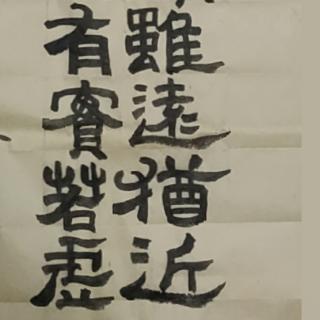 雖遠猶近
有實若虛